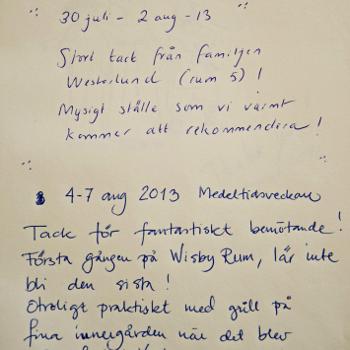 30 juli - 2 aug - 13
Stort tack från familjen
Westerlund (rum 5) !
Mysigt ställe som vi varmt
kommer att rekommendera !
4-7 aug 2013 Medeltidsveckan
Tack för fantastiskt bemötande !
Första gången på Wisby Rum, lär inte
bli den sista !
Otroligt praktiskt med grill på
fina innergården när det blev